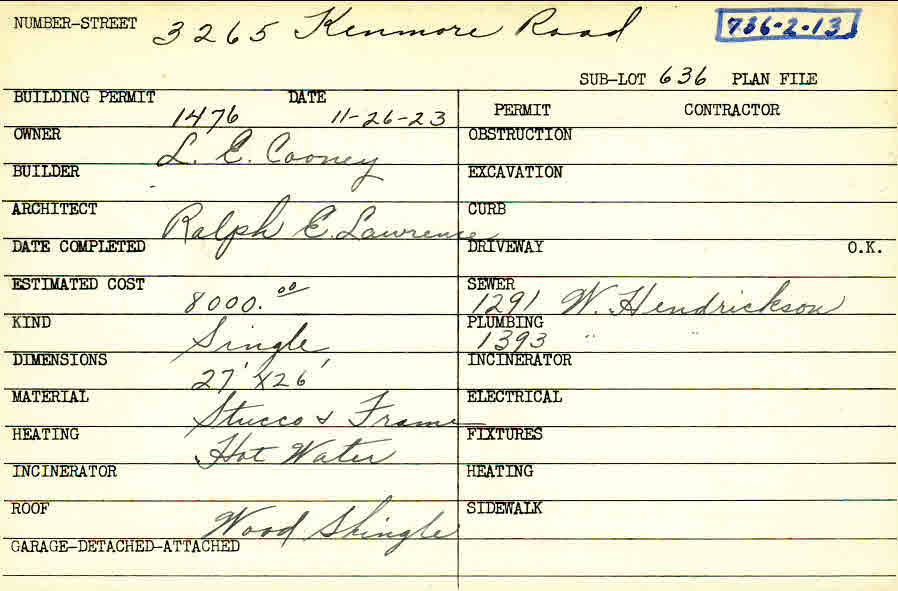 NUMBER-STREET 3265 Kenmore Road 736-2-13
SUB-LOT 636 PLAN FILE
BUILDING PERMIT 1476 DATE 11-26-23
PERMIT CONTRACTOR
OWNER L. E. Cooney
OBSTRUCTION
BUILDER
EXCAVATION
ARCHITECT Ralph E. Lawrence
CURB
DATE COMPLETED
DRIVEWAY O.K.
ESTIMATED COST 8000.00
SEWER 1291 W. Hendrickson
KIND Single
PLUMBING 1393 " "
DIMENSIONS 27' x 26'
INCINERATOR
MATERIAL Stucco & Frame
ELECTRICAL
HEATING Hot Water
FIXTURES
INCINERATOR
HEATING
ROOF Wood Shingle
SIDEWALK
GARAGE-DETACHED-ATTACHED